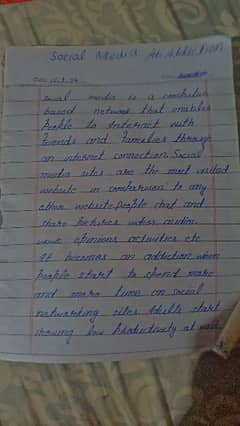 Social Media An Addiction
social media is a computer
based network that enables
people to Interact with
friends and families through
an internet connection. Social
media sites are the most visited
website in comparison to any
other website. People chat and
share pictures videos audio
music opinions activities etc
It becomes an addiction when
people start to spend more
and more time on social
networking sites Adults start
showing low productivity at work